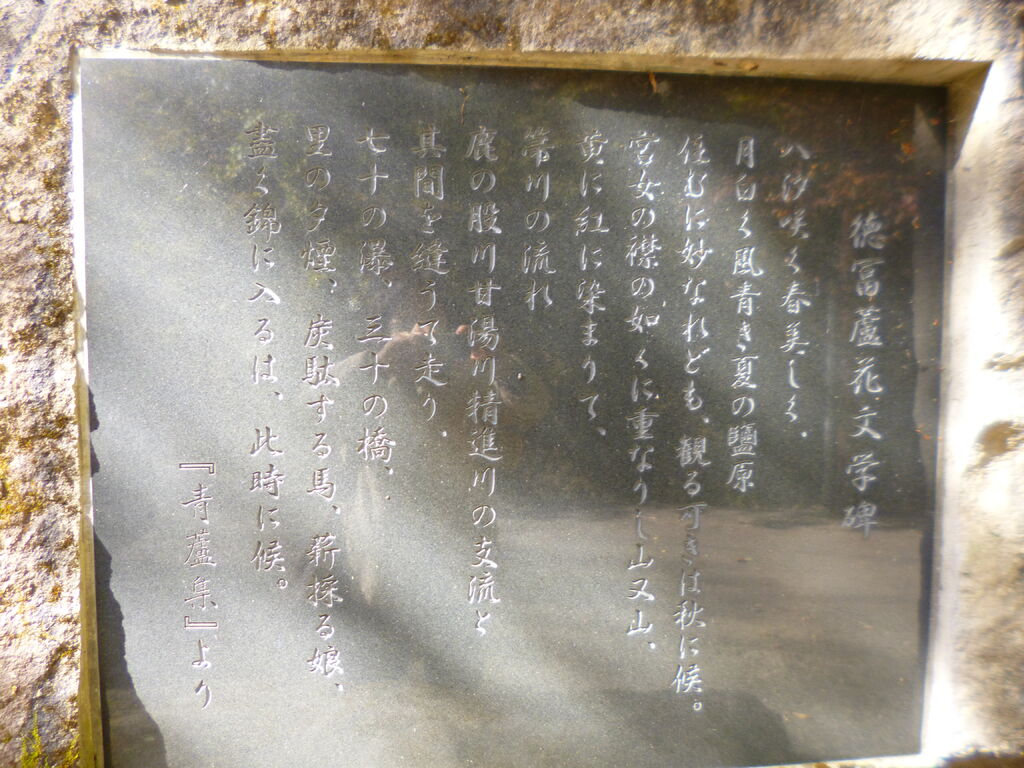 徳冨蘆花文学碑
八汐咲く春美しく、
月白く風青き夏の鹽原
住むに妙なれども、観る可きは秋に候。
宮女の襟の如くに重なりし山又山、
黄に紅に染まりて、
箒川の流れ
鹿の股川甘湯川精進川の支流と
其間を縫うて走り、
七十の瀑、三十の橋、
里の夕煙、炭駄する馬、薪採る娘、
盡く錦に入るは、此時に候。
『青蘆集』より